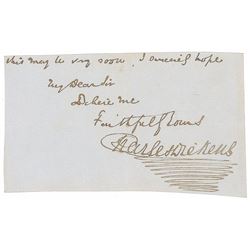 this may be very soon, I sincerely hope
My Dear Sir
Believe me
Faithfully Yours
Charles Dickens